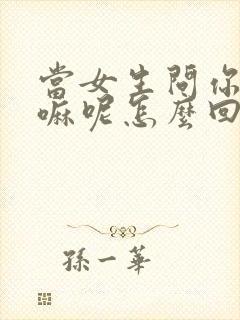 當女生問你
嘛呢怎麼回
孫一華